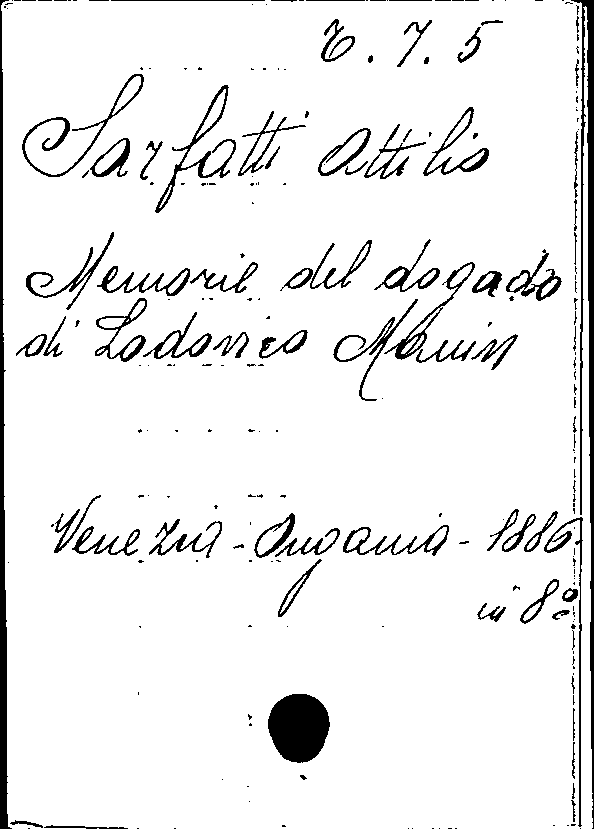 7. 5
Sarfatti Attilio
Memorie del dogado
di Lodovico Manin
Venezia - Ongania - 1886.
in 8º